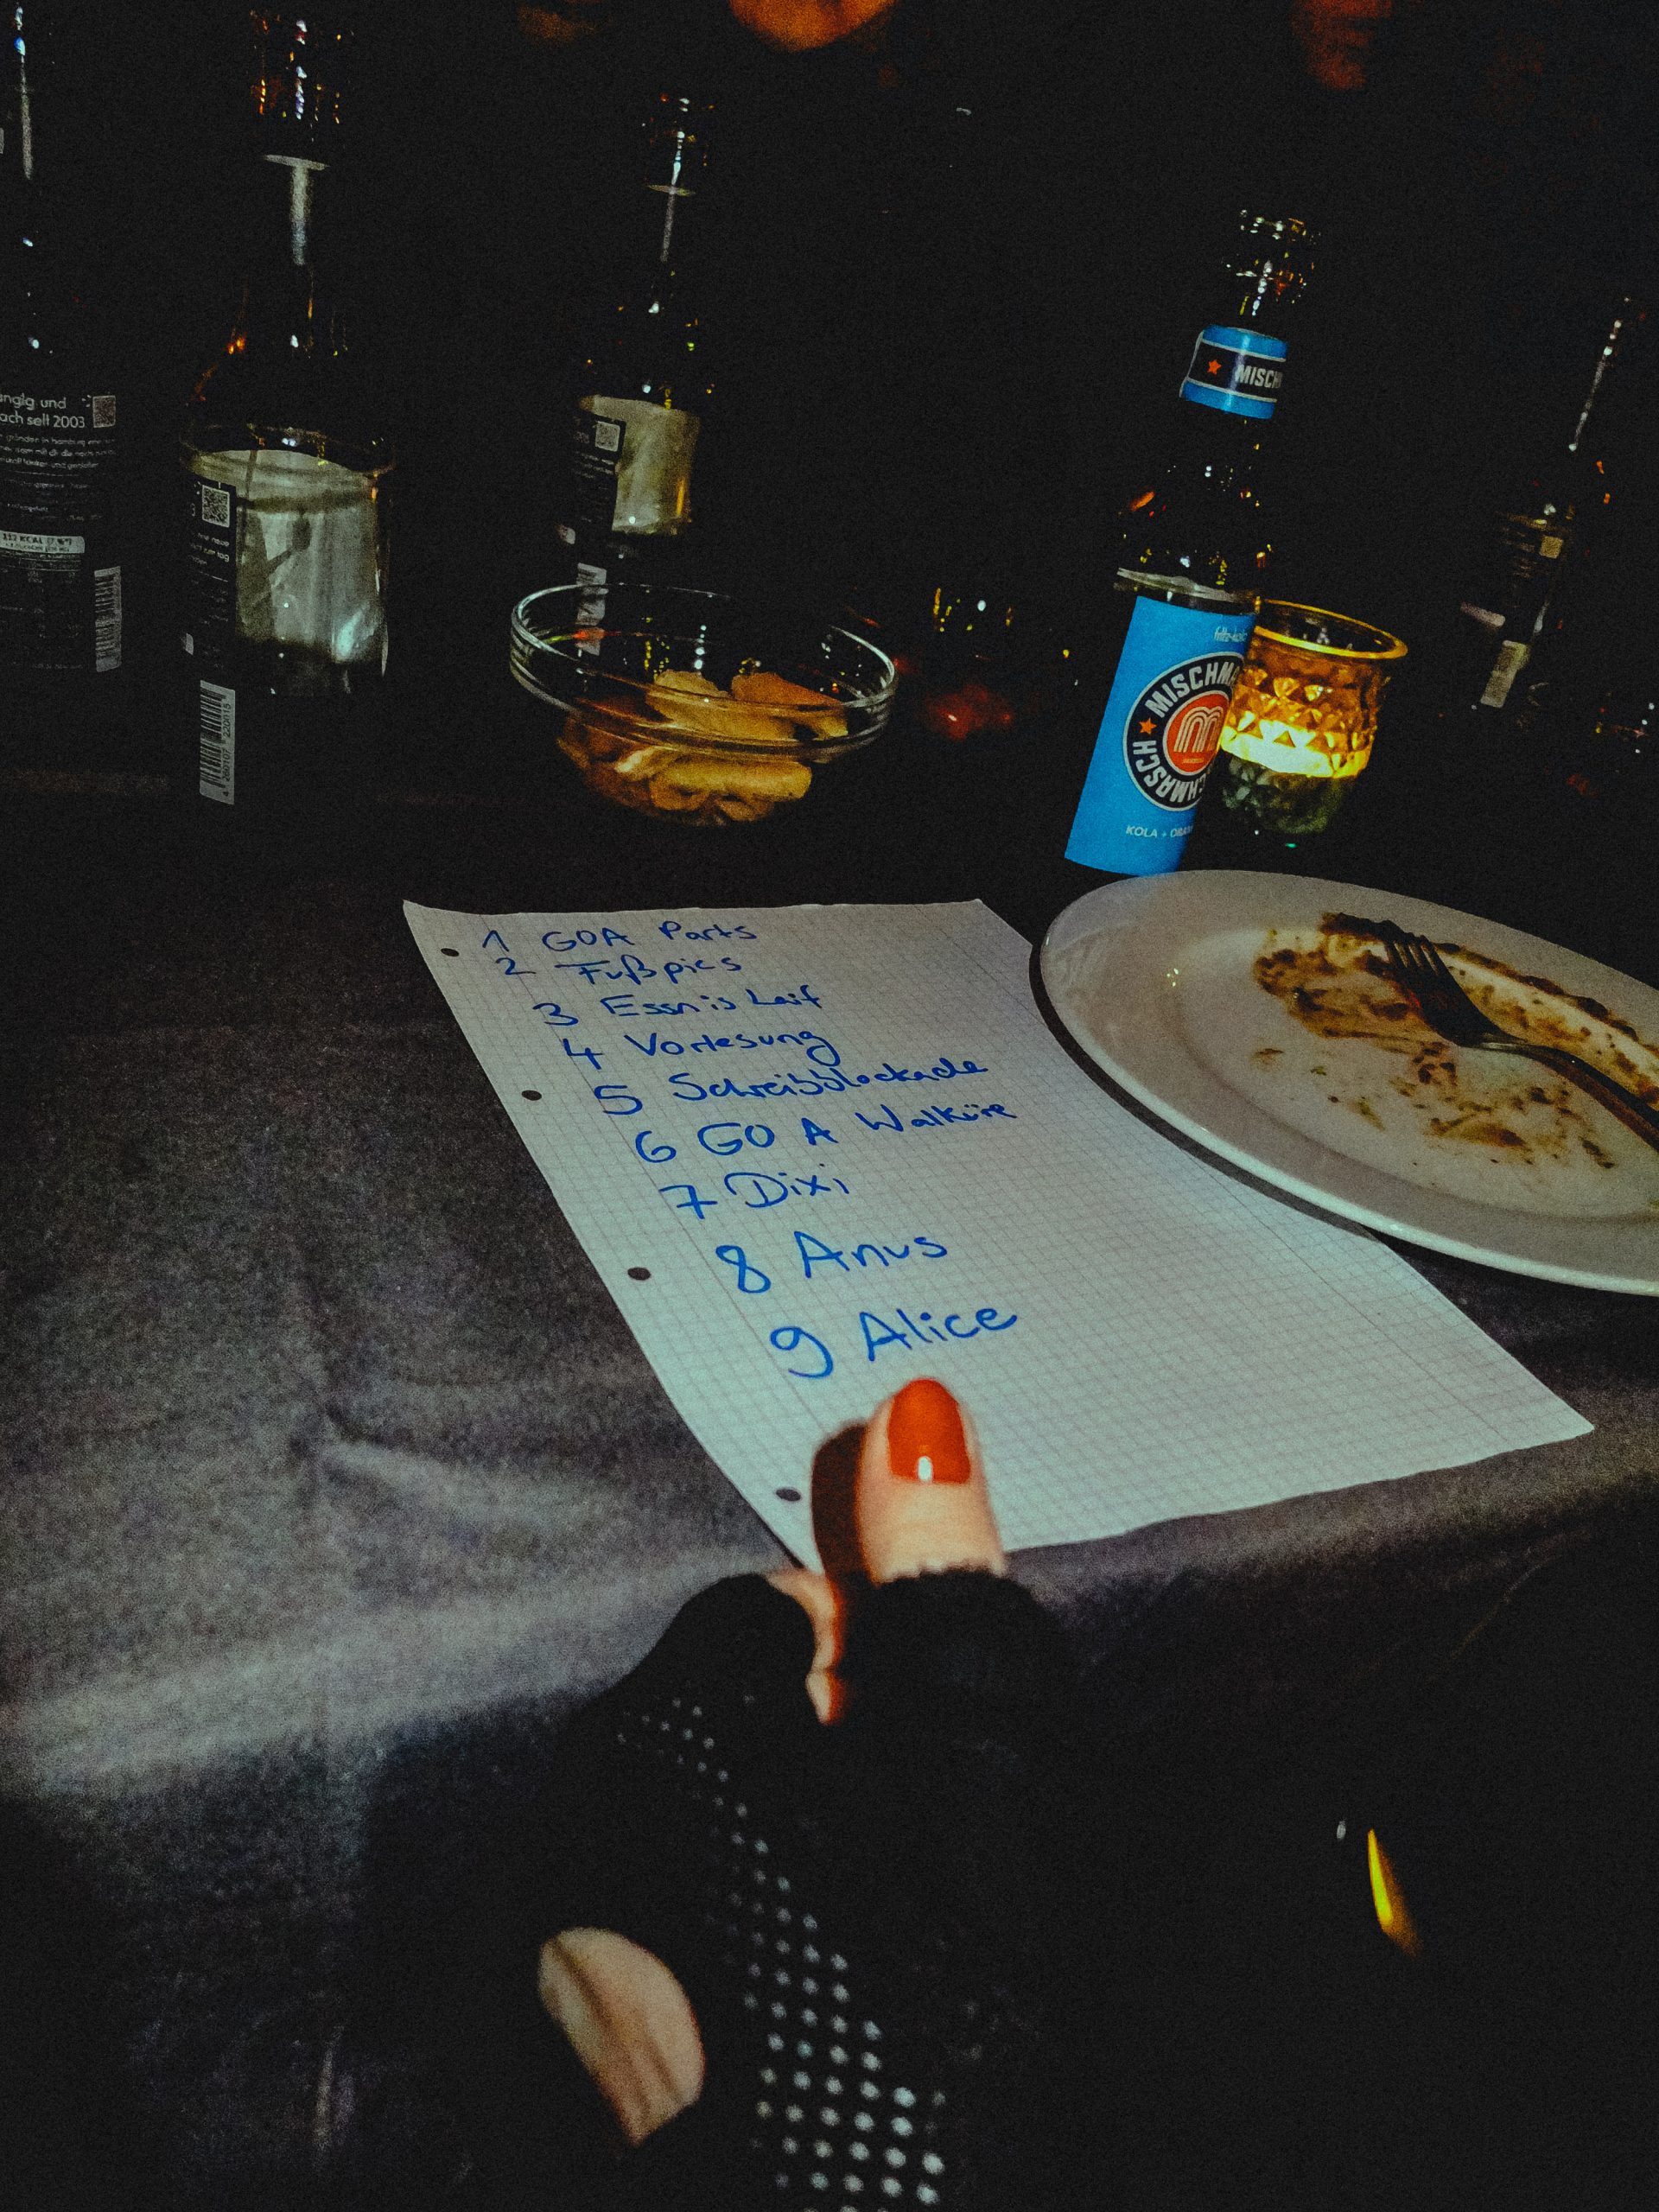 angig und
ach seit 2003
MISCH
fritz-kola
MISCHMA
SCHMASCH
KOLA + ORAN
1 GOA Parts
2 Fußpics
3 Essn is Laif
4 Vorlesung
5 Schreibblockade
6 GO A Walküre
7 Dixi
8 Anus
9 Alice